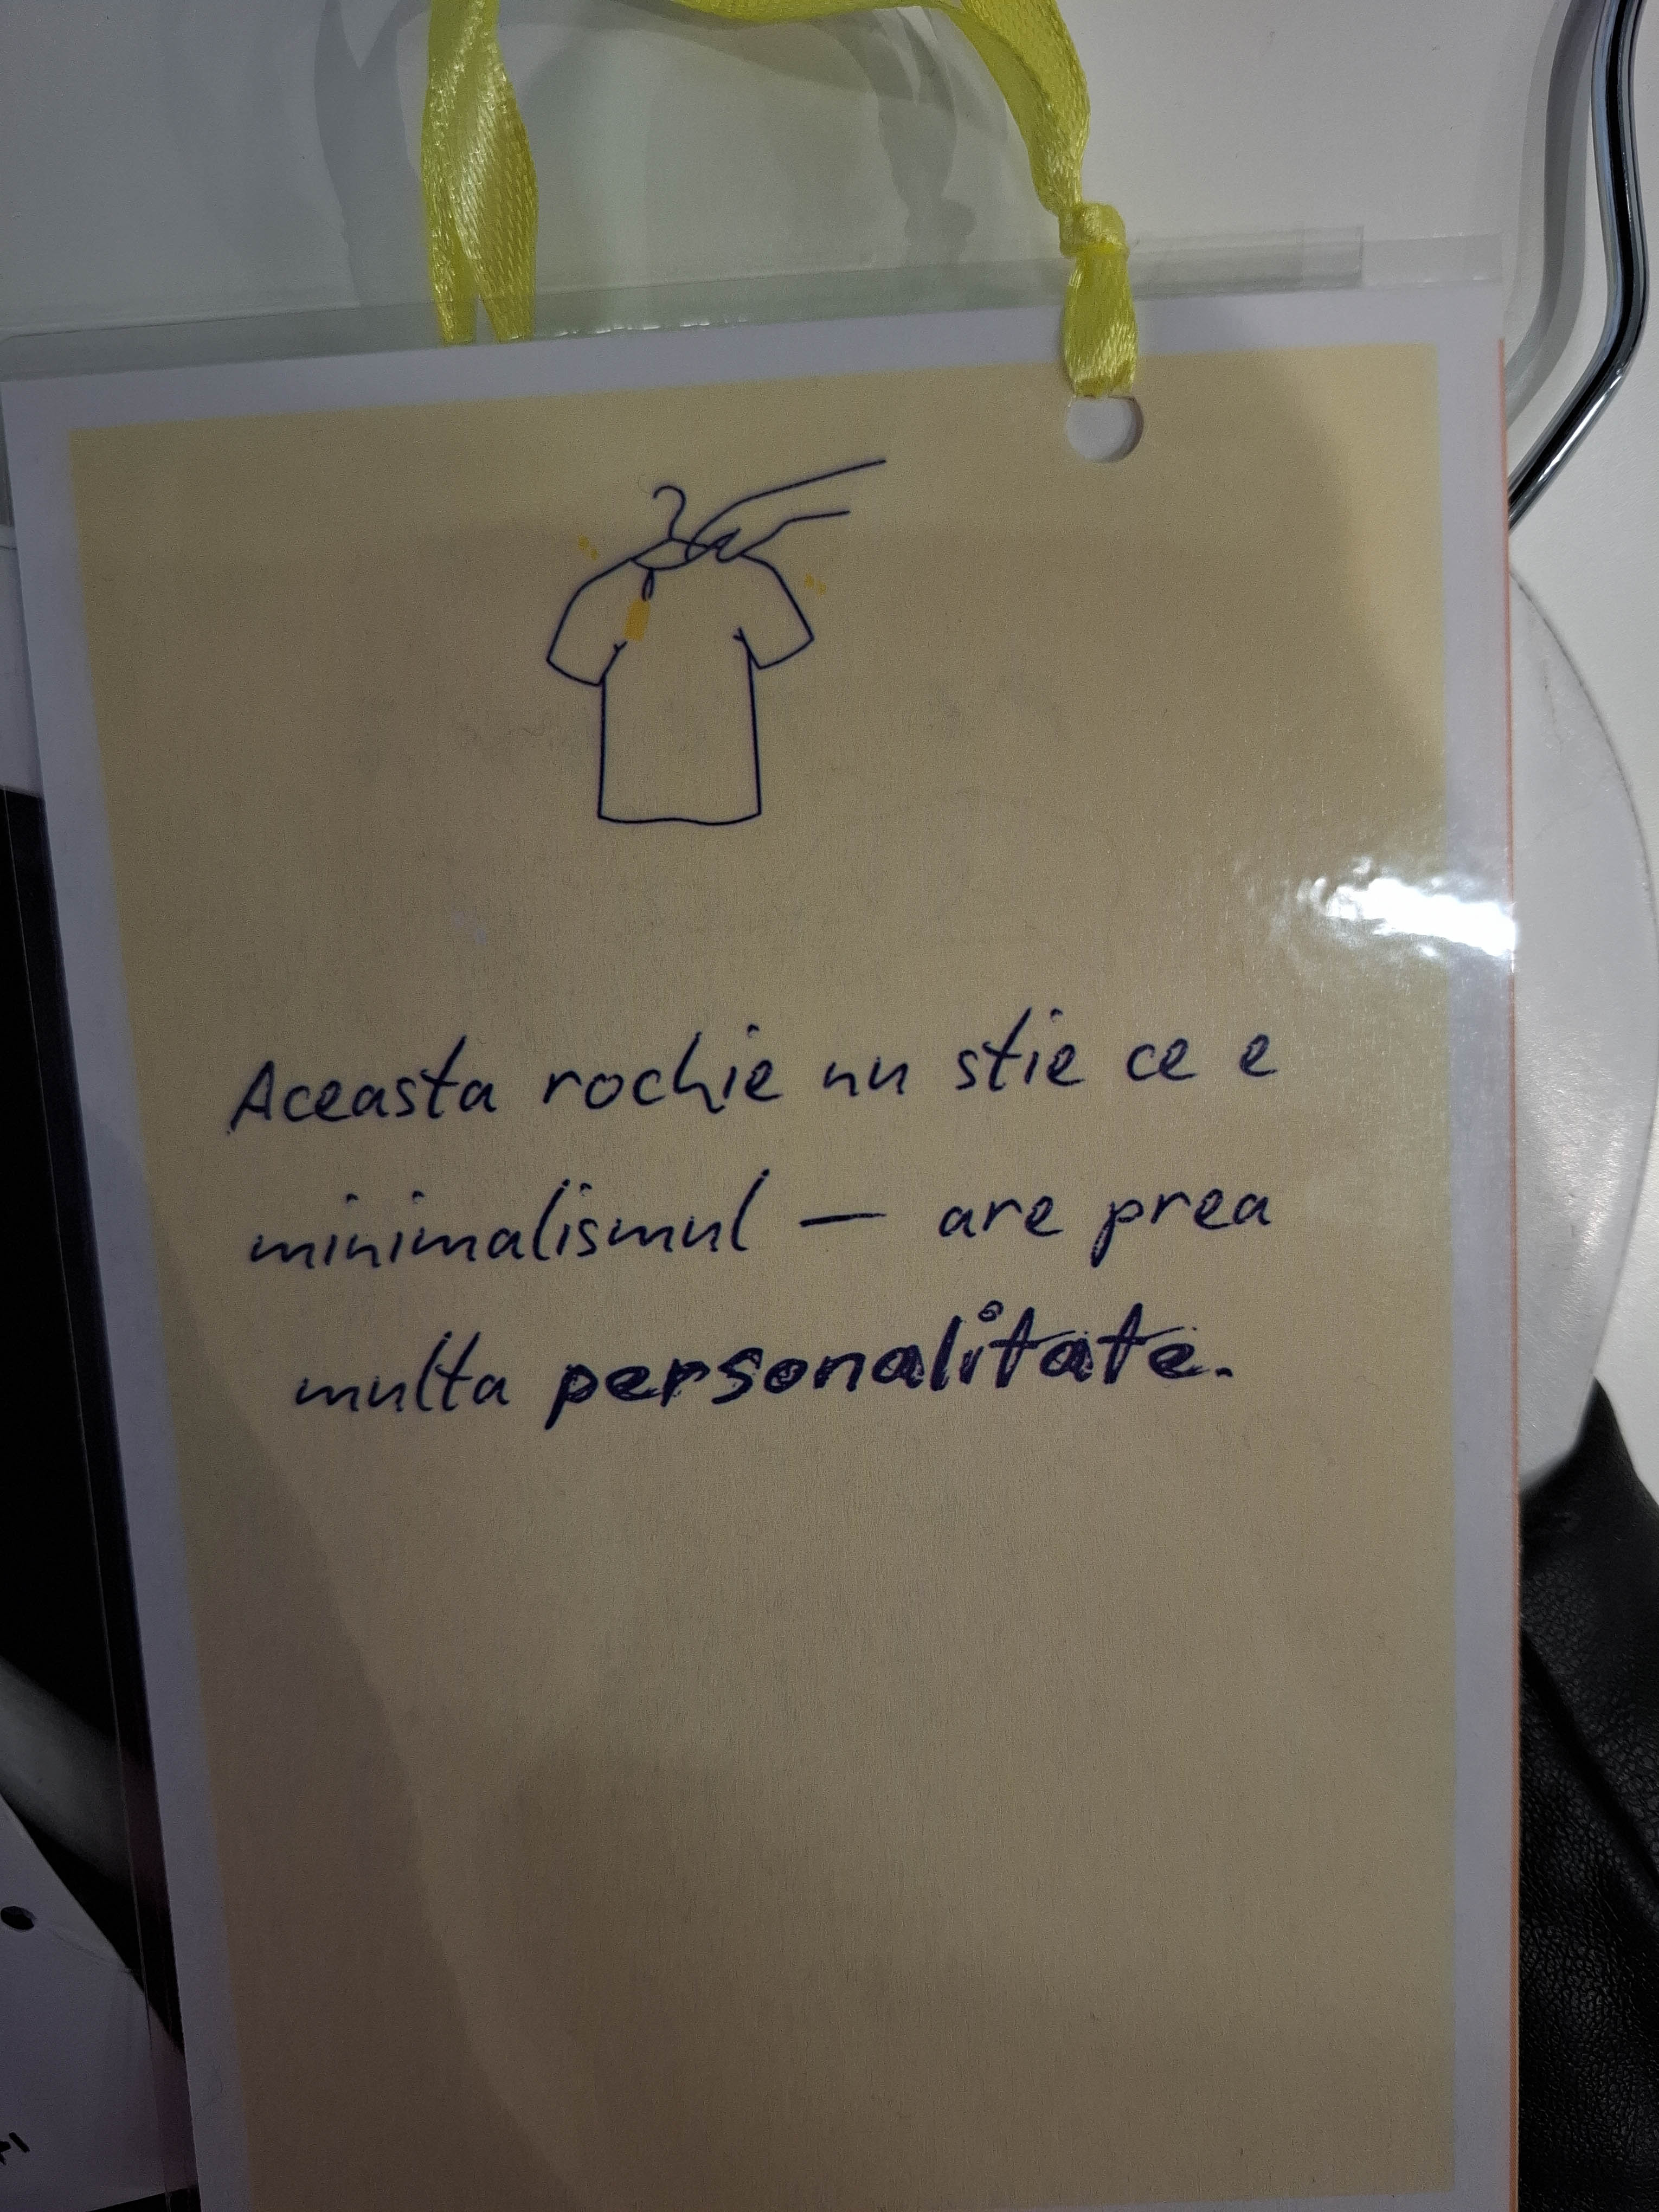 Aceasta rochie nu stie ce e
minimalismul — are prea
multa personalitate.